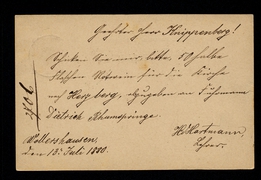 Geehrter Herr Knippenberg!
Schicken Sie mir, bitte, 50 halbe
Flaschen Rotwein für die Kirche
nach Herzberg, abzugeben an Fuhrmann
Dietrich Rhumspringe.
Wollershausen,
den 13. Juli 1880.
H. Hartmann,
Lehrer.